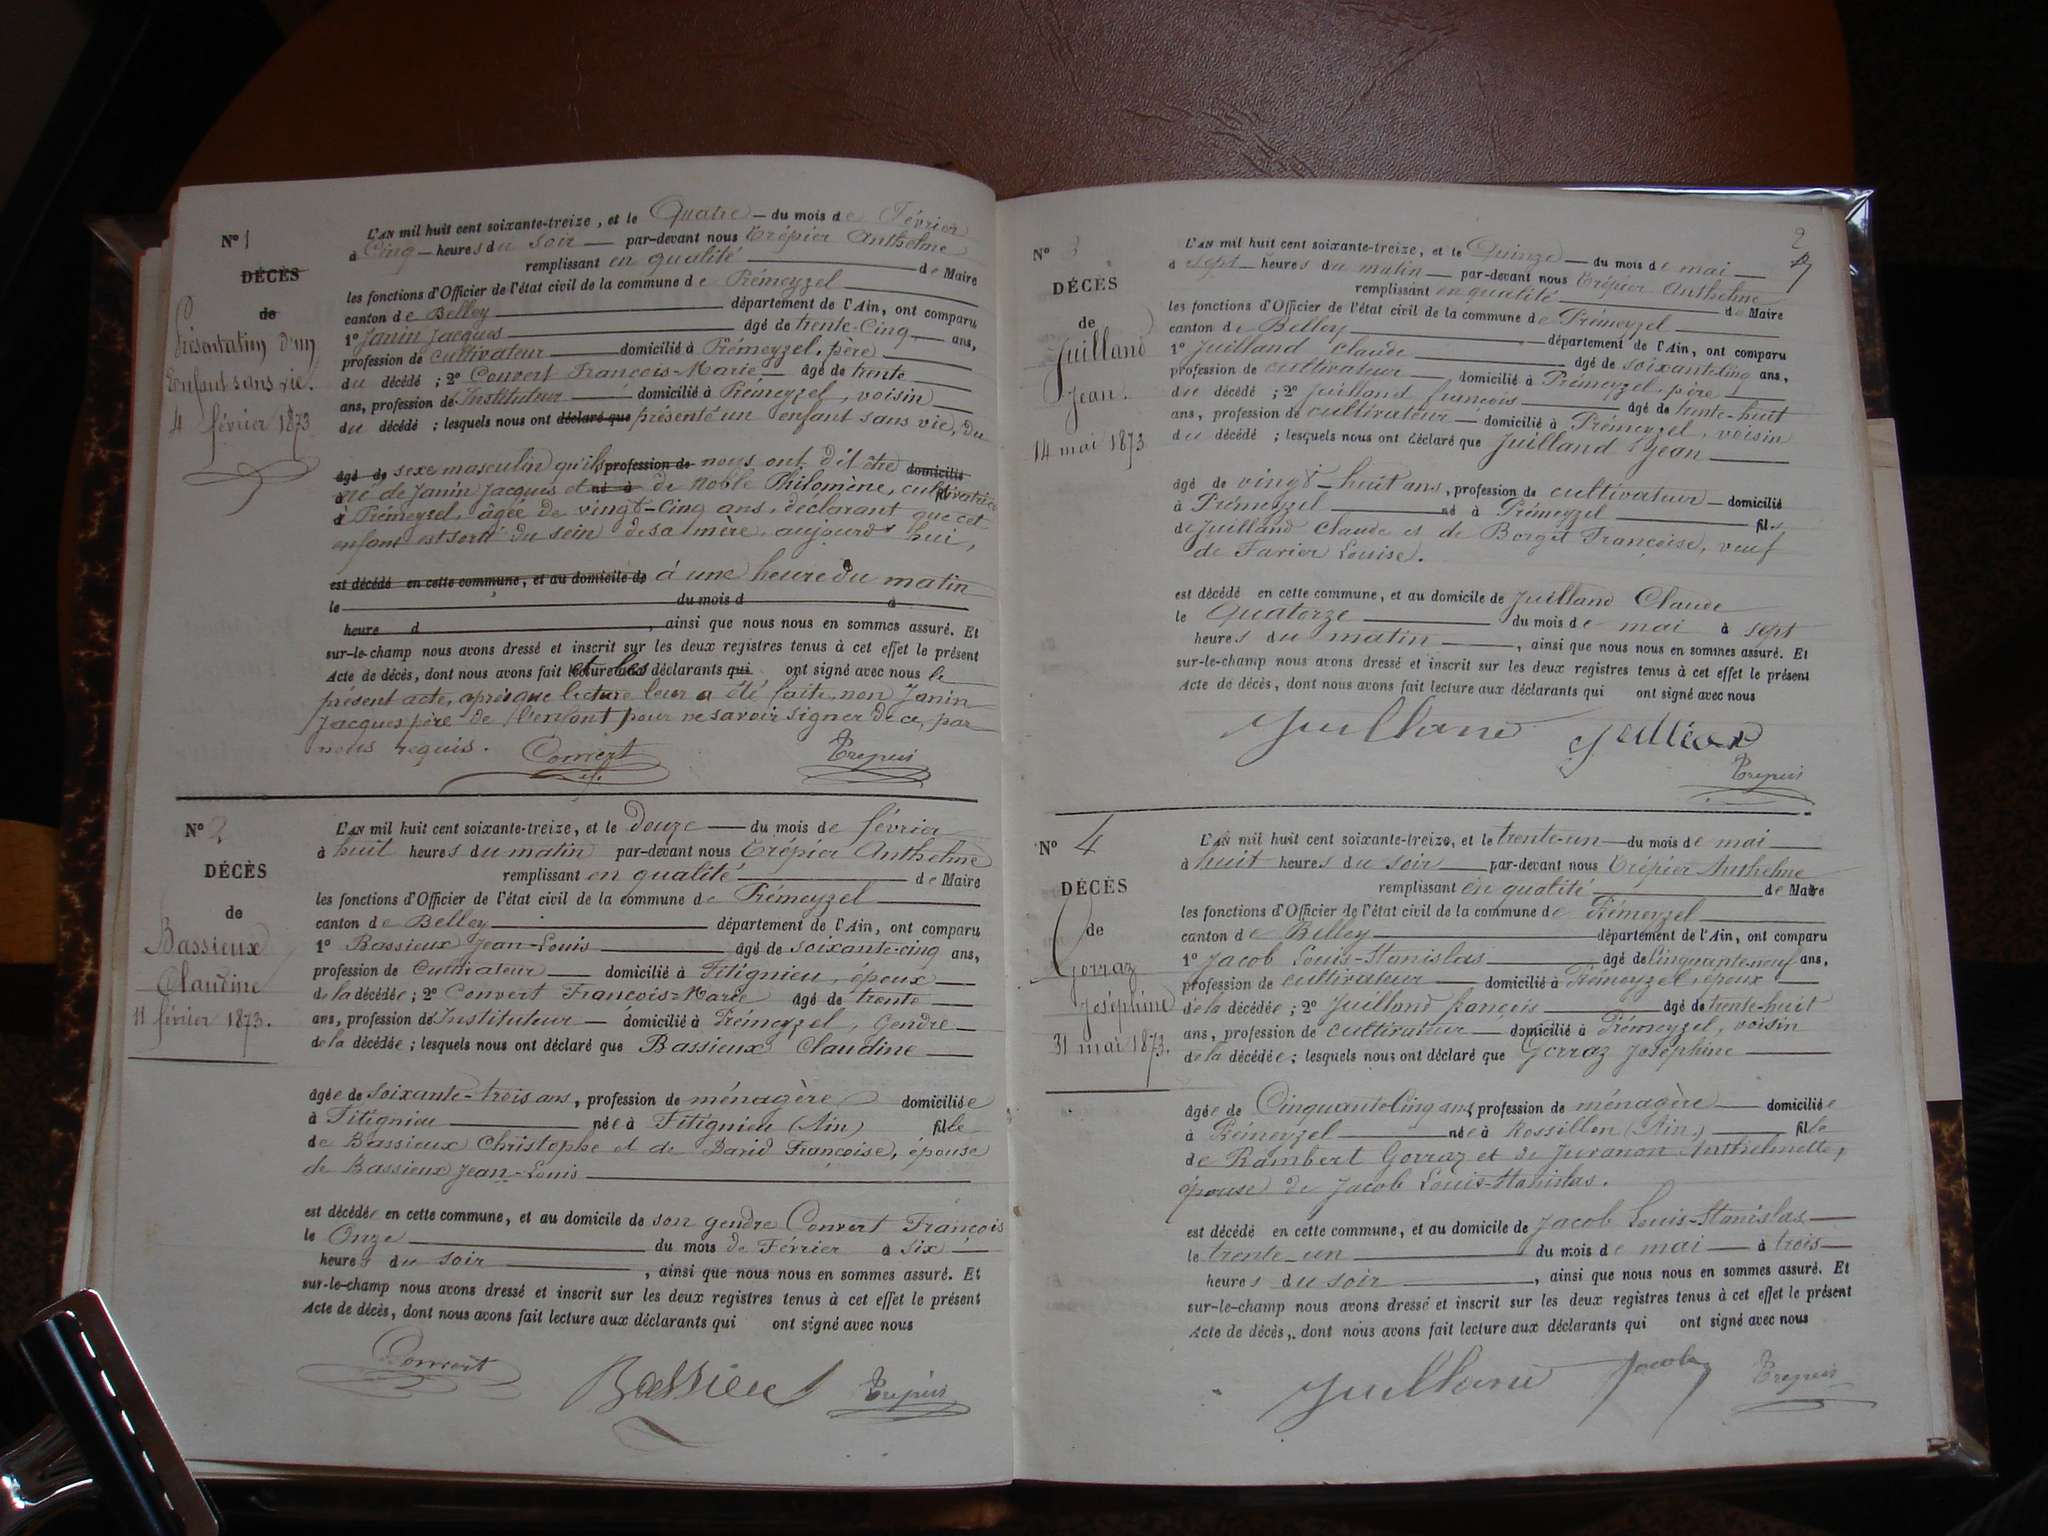 Nº 1
DÉCÈS
de
Présentation d'un
Enfant sans vie.
4 février 1873
L'AN mil huit cent soixante-treize, et le Quatre du mois de Février
à Cinq heures du soir par-devant nous Trépier Anthelme
remplissant en qualité de Maire
les fonctions d'Officier de l'état civil de la commune de Prémeyzel
canton de Belley département de l'Ain, ont comparu
1º Janin Jacques âgé de trente-Cinq ans,
profession de cultivateur domicilié à Prémeyzel, père
du décédé ; 2º Convert François-Marie âgé de trente
ans, profession de Instituteur domicilié à Prémeyzel, voisin
du décédé ; lesquels nous ont déclaré que présenté un enfant sans vie, du
âgé de sexe masculin qu'ils profession de nous ont dit être domicilié
à né de Janin Jacques et né à de Noble Philomène, cultivatrice
à Prémeyzel, âgée de vingt-Cinq ans, déclarant que cet
enfant est sorti du sein de sa mère, aujourd'hui,
est décédé en cette commune, et au domicile de à une heure du matin
le du mois d à
heure d , ainsi que nous nous en sommes assuré. Et
sur-le-champ nous avons dressé et inscrit sur les deux registres tenus à cet effet le présent
Acte de décès, dont nous avons fait et les déclarants qui ont signé avec nous le
présent acte, après que lecture leur a été faite, non Janin
Jacques père de l'enfant pour ne savoir signer de ce, par
nous requis.
Convert Trepier
Nº 2
DÉCÈS
de
Bassieux
Claudine
11 février 1873.
L'AN mil huit cent soixante-treize, et le douze du mois de février
à huit heures du matin par-devant nous Trépier Anthelme
remplissant en qualité de Maire
les fonctions d'Officier de l'état civil de la commune de Prémeyzel
canton de Belley département de l'Ain, ont comparu
1º Bassieux Jean-Louis âgé de soixante-cinq ans,
profession de Cultivateur domicilié à Fitignieu, époux
de la décédée ; 2º Convert François-Marie âgé de trente
ans, profession de Instituteur domicilié à Prémeyzel, Gendre
de la décédée ; lesquels nous ont déclaré que Bassieux Claudine
âgée de soixante-trois ans, profession de ménagère domiciliée
à Fitignieu née à Fitignieu (Ain) fille
de Bassieux Christophe et de David Françoise, épouse
de Bassieux Jean-Louis
est décédée en cette commune, et au domicile de son gendre Convert François
le Onze du mois de Février à six
heures du soir , ainsi que nous nous en sommes assuré. Et
sur-le-champ nous avons dressé et inscrit sur les deux registres tenus à cet effet le présent
Acte de décès, dont nous avons fait lecture aux déclarants qui ont signé avec nous
Convert Bassieux Trepier
2
Nº 3
DÉCÈS
de
Juilland
Jean.
14 mai 1873
L'AN mil huit cent soixante-treize, et le Quinze du mois de mai
à sept heures du matin par-devant nous Trépier Anthelme
remplissant en qualité de Maire
les fonctions d'Officier de l'état civil de la commune de Prémeyzel
canton de Belley département de l'Ain, ont comparu
1º Juilland Claude âgé de soixante-cinq ans,
profession de cultivateur domicilié à Prémeyzel, père
du décédé ; 2º Juilland françois âgé de trente-huit
ans, profession de cultivateur domicilié à Prémeyzel, voisin
du décédé ; lesquels nous ont déclaré que Juilland Jean
âgé de vingt-huit ans, profession de cultivateur domicilié
à Prémeyzel né à Prémeyzel fils
de Juilland Claude et de Borget Françoise, veuf
de Favier Louise.
est décédé en cette commune, et au domicile de Juilland Claude
le Quatorze du mois de mai à sept
heures du matin , ainsi que nous nous en sommes assuré. Et
sur-le-champ nous avons dressé et inscrit sur les deux registres tenus à cet effet le présent
Acte de décès, dont nous avons fait lecture aux déclarants qui ont signé avec nous
Juilland Juilland
Trepier
Nº 4
DÉCÈS
de
Gorraz
Joséphine
31 mai 1873.
L'AN mil huit cent soixante-treize, et le trente-un du mois de mai
à huit heures du soir par-devant nous Trépier Anthelme
remplissant en qualité de Maire
les fonctions d'Officier de l'état civil de la commune de Prémeyzel
canton de Belley département de l'Ain, ont comparu
1º Jacob Louis-Stanislas âgé de Cinquante-neuf ans,
profession de cultivateur domicilié à Prémeyzel, époux
de la décédée ; 2º Juilland françois âgé de trente-huit
ans, profession de cultivateur domicilié à Prémeyzel, voisin
de la décédée ; lesquels nous ont déclaré que Gorraz Joséphine
âgée de Cinquante-Cinq ans, profession de ménagère domiciliée
à Prémeyzel née à Rossillon (Ain) fille
de Rambert Gorraz et de Juvanon Anthelmette,
épouse de Jacob Louis-Stanislas.
est décédé en cette commune, et au domicile de Jacob Louis-Stanislas
le trente-un du mois de mai à trois
heures du soir , ainsi que nous nous en sommes assuré. Et
sur-le-champ nous avons dressé et inscrit sur les deux registres tenus à cet effet le présent
Acte de décès, dont nous avons fait lecture aux déclarants qui ont signé avec nous
Juilland Jacob Trepier